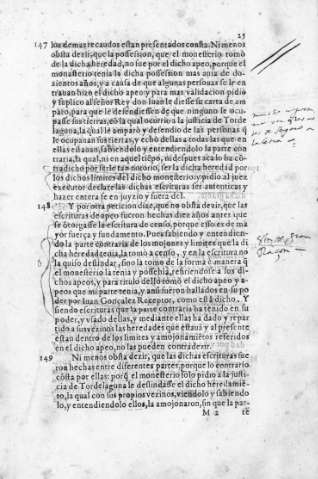 25
147 los demas recaudos estan presentados consta. Ni menos
obsta dezir, que la possession, que el monesterio tomò
de la dicha heredad, no fue por el dicho apeo, porque el
monasterio tenia la dicha possession mas auia de do-
zientos años, y a causa de que algunas personas se le en-
trauan en el dicho apeo, y para mas validacion pidio
y suplico al señor Rey don Iuan le diesse su carta de am-
paro, para que le defendiessen de que ninguno le ocu-
passe sus tierras, con la qual ocurrio a la justicia de Torde
lagona, la qual le amparò y defendio de las personas q̃
le ocupauan sus tierras, y echò dellas a todas las que en
ellas estauan, sabiendolo y entendiendolo la parte con
traria, la qual, ni en aquel tiẽpo, ni despues aca lo ha cõ
tradicho por serle tan notorio, ser la dicha heredad por
los dichos limites del dicho monesterio, y pidio al juez
executor declarasse las dichas escrituras ser autenticas y
hazer entera fe en juyzio y fuera del.
148 Y por otra peticion dize, que no obsta dezir, que las
escrituras de apeo fueron hechas diez años antes que
se otorgasse la escritura de censo, porque esso es de ma
yor fuerça y fundamento. Pues sabiendo y entendien-
do la parte contraria de los mojones y limites que la di
cha heredad tenia, la tomò a censo, y en la escritura no
la quiso deslindar, sino la tomò de la forma y manera q̃
el monesterio la tenia y posseìa, refiriendose a sus di-
chos apeos, y para titulo dello tomò el dicho apeo y a-
peos que mi parte tenia, y ansi fueron hallados en su po
der por Iuan Gonçalez Receptor, como està dicho. Y
siendo escrituras que la parte contraria ha tenido en su
poder, y vsado dellas, y mediante ellas ha dado y repar
tido a sus vezinos las heredades que estauã y al presente
estan dentro de los limites y amojonamiẽtos referidos
en el dicho apeo, no las pueden contradezir.
149 Ni menos obsta dezir, que las dichas escrituras fue
ron hechas entre diferentes partes, porque lo contrario
cõsta por ellas: porq̃ el monesterio solo pidio a la justi-
cia de Tordelaguna le deslindasse el dicho heredamiẽ-
to, la qual con sus propios vezinos, viendolo y sabiendo
lo, y entendiendolo ellos, la amojonaron, sin que la par-
M 2 te